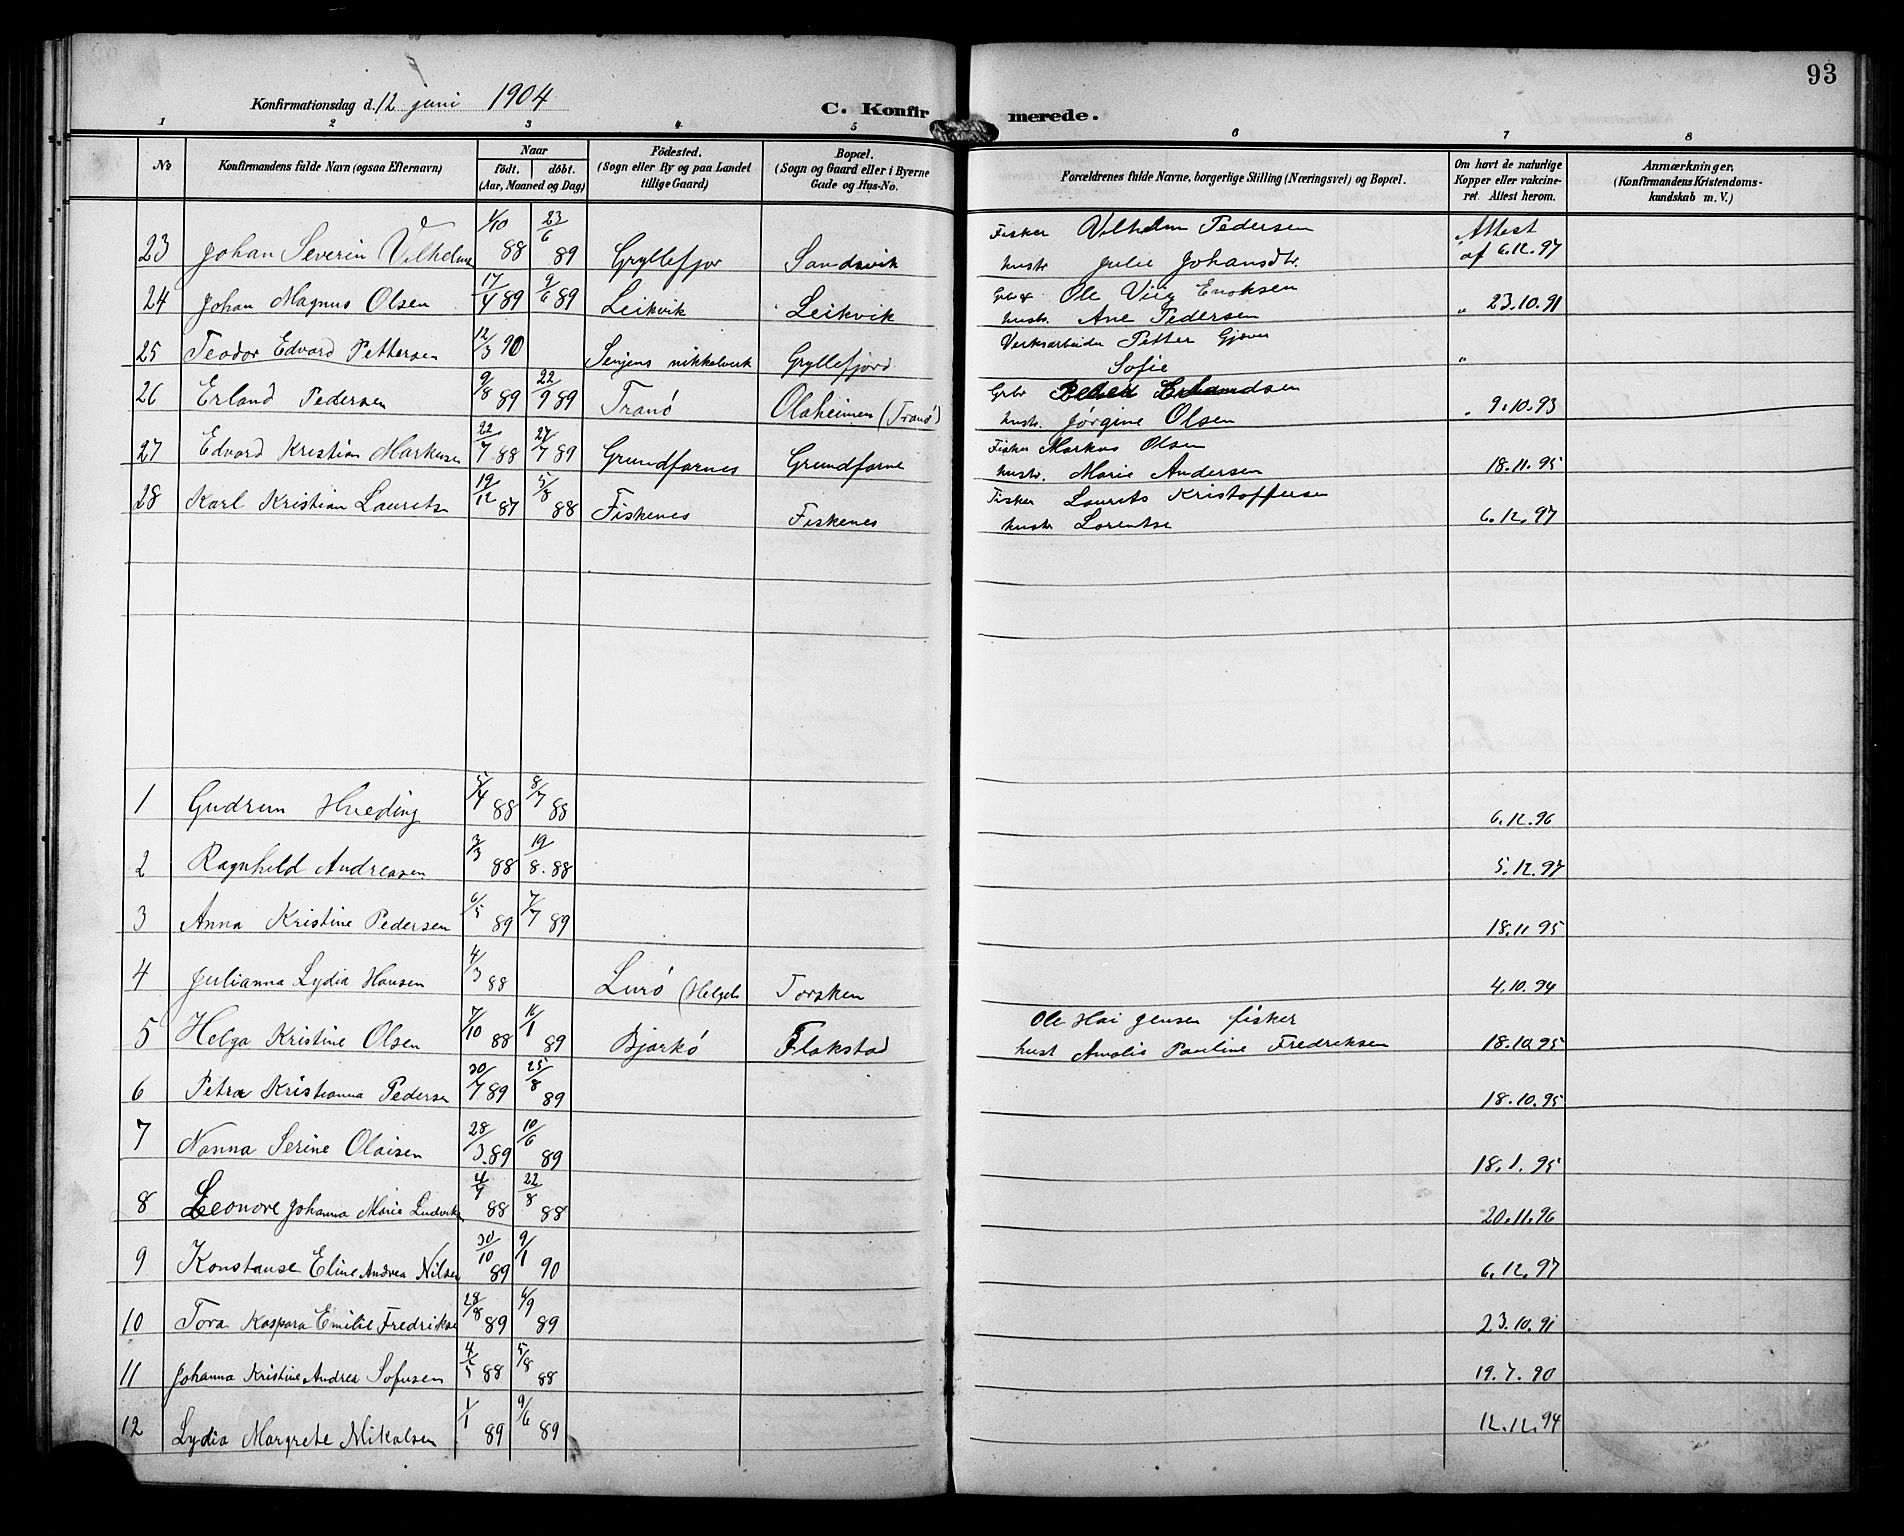 93
Konfirmationsdag d. 12 juni 1904
C. Konfirmerede.
1 2 3 4 5 6 7 8
No
Konfirmandens fulde Navn (ogsaa Efternavn)
Naar
født, døbt.
(Aar, Maaned og Dag)
Fødested.
(Sogn eller By og paa Landet
tillige Gaard)
Bopæl.
(Sogn og Gaard eller i Byerne
Gade og Hus-No.
Forældrenes fulde Navne, borgerlige Stilling (Næringsvei) og Bopæl.
Om havt de naturlige
Kopper eller vakcine-
ret. Attest herom.
Anmærkninger.
(Konfirmandens Kristendoms-
kundskab m. V.)
23 Johan Severin Vilhelms 1/10 88 23/6 89 Gryllefjor Sandsvik Fisker Vilhelm Pedersen Attest
hustr Julie Johansdtr. af 6.12.97
24 Johan Magnus Olsen 17/4 89 9/6 89 Leikvik Leikvik Ole Enoksen " 23.10.91
hustr. Ane Pedersen
25 Teodor Edvard Pettersen 12/3 90 Senjens nikkelverk Gryllefjord Verksarbeider Petter Gjæver
Sofie "
26 Erland Pedersen 9/8 89 22/9 89 Tranö Olaheimen (Tranö) Grbr Peder Erlandsen
hustr. Jørgine Olsen " 9.10.93
27 Edvard Kristian Markusen 22/7 88 27/7 89 Grundfarnes Grundfarne Fisker Markus Olsen
hustr. Marie Andersen 18.11.95
28 Karl Kristian Laurits 19/12 87 5/8 88 Fiskenes Fiskenes Fisker Laurits Kristoffersen
hustr Lorentse 6.12.97
1 Gudrun Hveding 5/4 88 8/7 88 6.12.96
2 Ragnhild Andreasen 3/3 88 19/8. 88 5.12.97
3 Anna Kristine Pedersen 6/5 89 7/7 89 18.11 95
4 Julianna Lydia Hansen 4/3 88 Lurö (Helgel. Torsken 4.10.94
5 Helga Kristine Olsen 7/10 88 1 89 Bjarkö Flakstad Ole Hai Jensen fisker
hust Amalie Pauline Fredriksen 18.10.95
6 Petra Kristianna Pedersen 30/7 89 25/8 89 18.10.95
7 Nanna Serine Olaisen 28/3. 89 10/6 89 18.1.95
8 Leonore Johanna Marie Ludviks 88 22/8 88 20.11.96
9 Konstanse Eline Andrea Nilsen 30/10 89 9/1 90 6.12.97
10 Tora Kaspara Emilie Fredrikse 28/8 89 9 89 23.10.91
11 Johanna Kristine Andrea Sofusen 4/5 88 5/8 88 19.7.90
12 Lydia Margrete Mikalsen 1/1 89 9/6 89 12.12.94